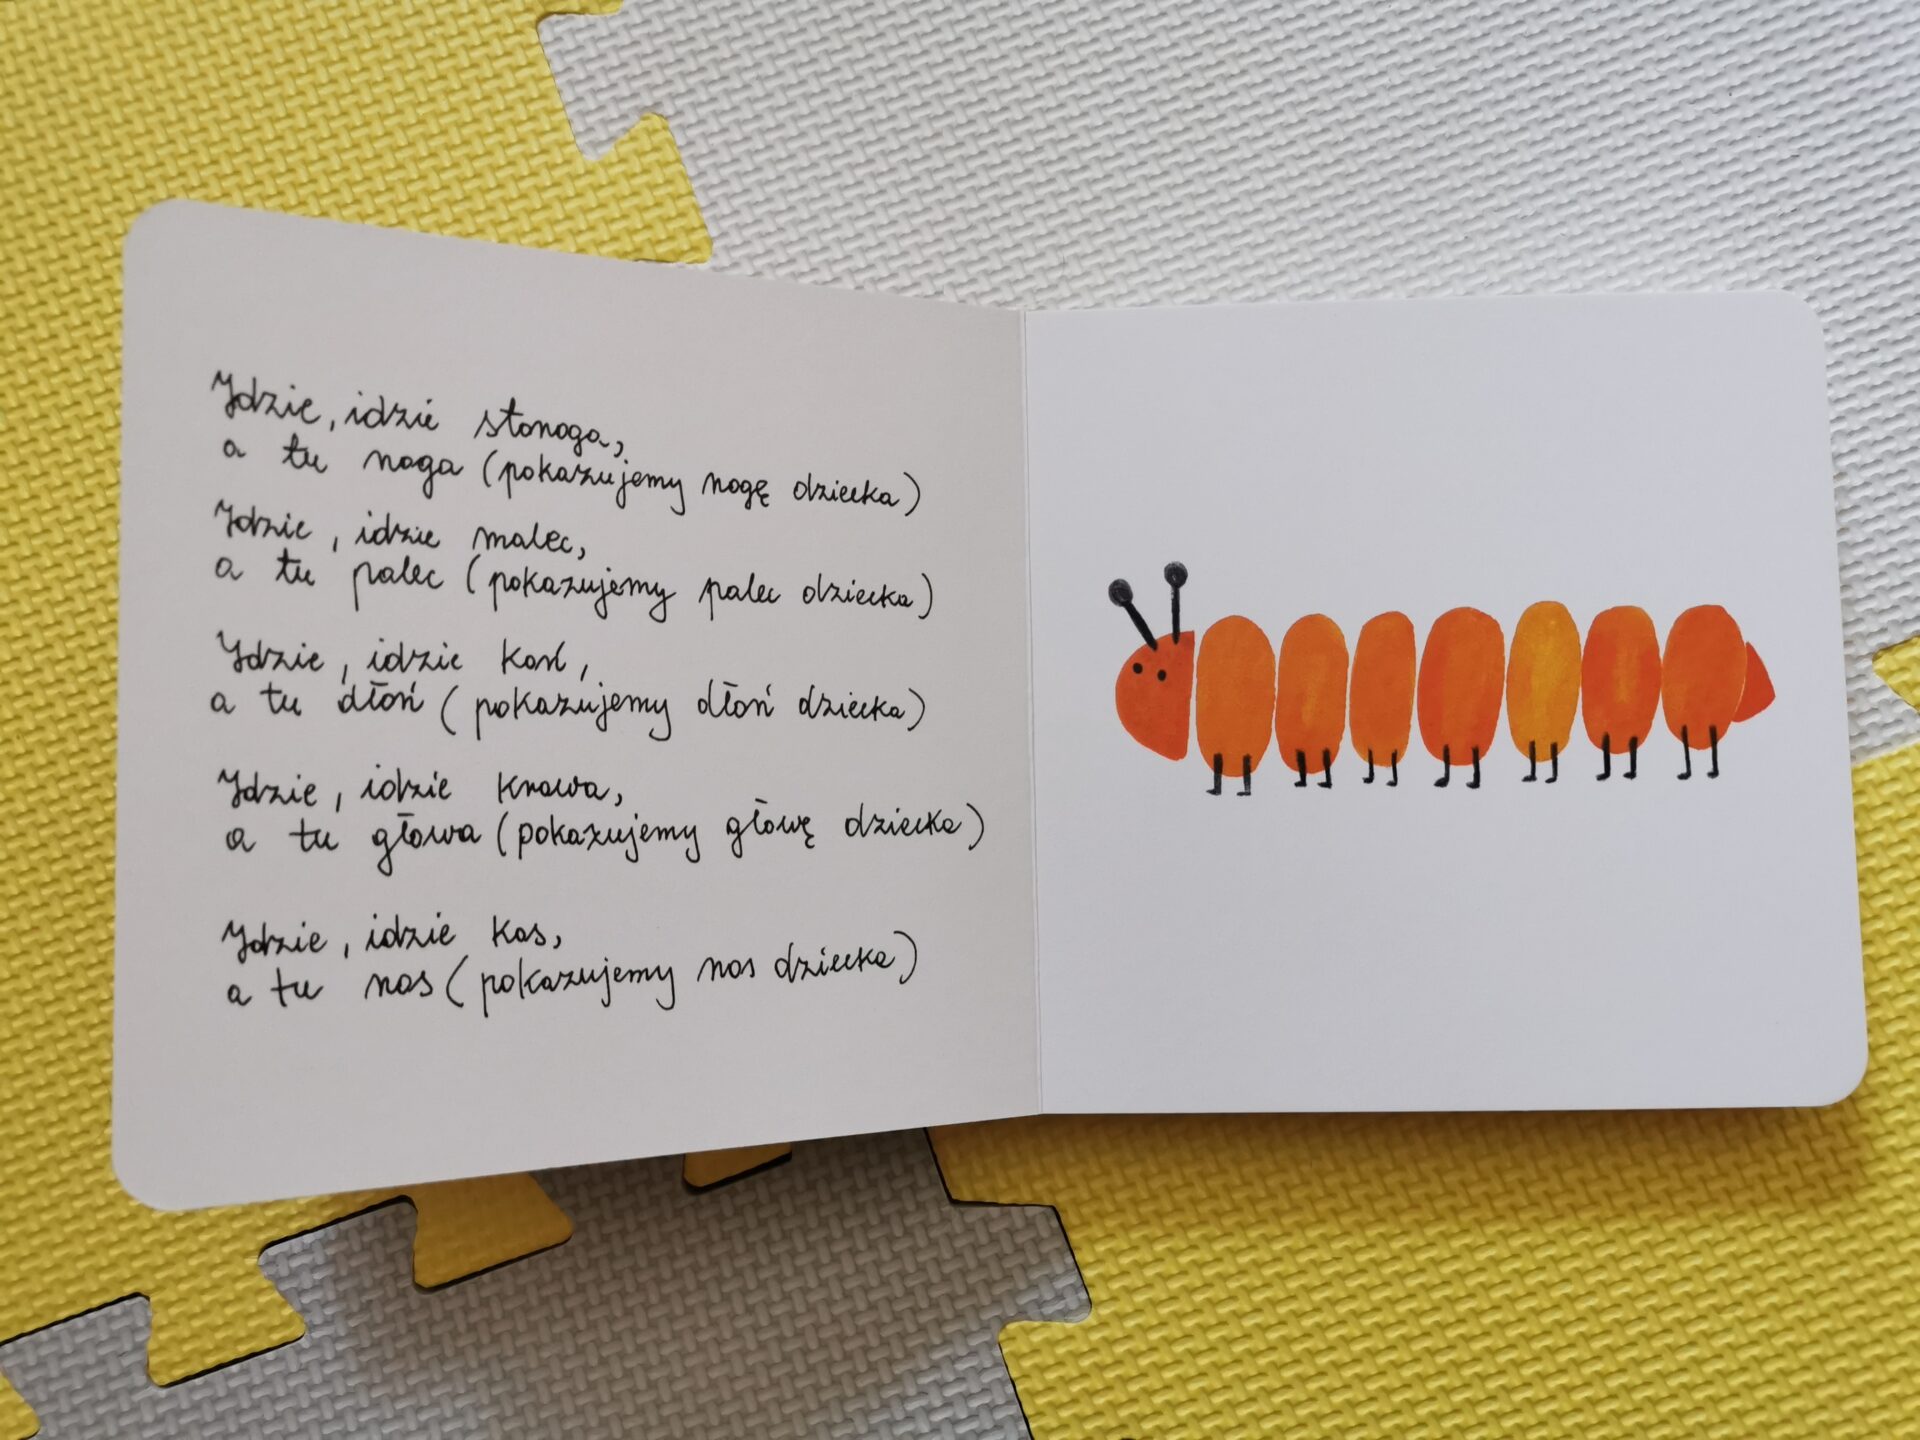 Idzie, idzie stonoga,
a tu noga (pokazujemy nogę dziecka)
Idzie, idzie malec,
a tu palec (pokazujemy palec dziecka)
Idzie, idzie koń,
a tu dłoń (pokazujemy dłoń dziecka)
Idzie, idzie krowa,
a tu głowa (pokazujemy głowę dziecka)
Idzie, idzie kos,
a tu nos (pokazujemy nos dziecka)